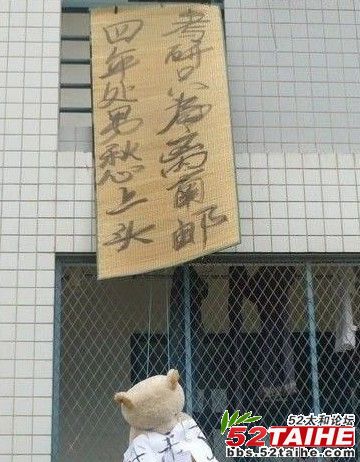 考研只為离南邮
四年处男愁上头
52太和论坛
52TAIHE
bbs.52taihe.com